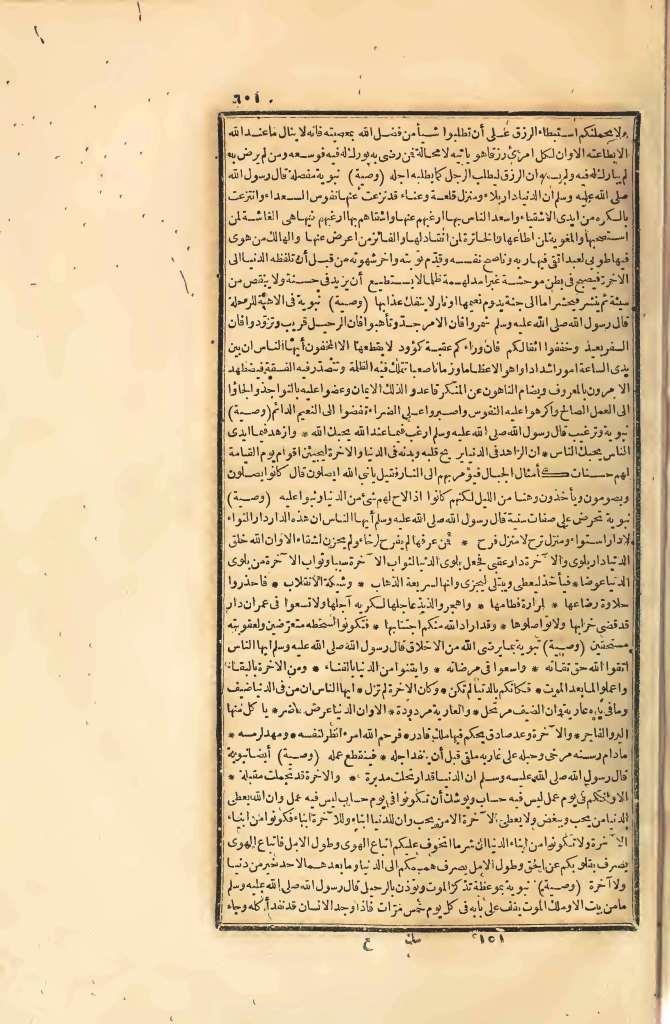 ٦٠١
ولا يحملنكم استبطاء الرزق على أن تطلبوا شيأ من فضل الله بمعصيته فانه لا ينال ما عند الله
الا بطاعته الا وان لكل امرئ رزقا هو يأتيه لا محالة فمن رضى به بورك له فيه فوسعه ومن لم يرض به
لم يبارك له فيه ولم يسعه ان الرزق ليطلب الرجل كما يطلبه اجله (وصية) نبوية مفصلة قال رسول الله
صلى الله عليه وسلم ان الدنيا دار بلاء ومنزل قلعة وعناء قد نزعت عنها نفوس السعداء وانتزعت
بالكره من ايدى الاشقياء واسعد الناس بها ارغبهم عنها واشقاهم بها ارغبهم فيها هى الغاشة لمن
استنصحها والمغوية لمن اطاعها والخاترة لمن انقاد لها والفائز من اعرض عنها والهالك من هوى
فيها طوبى لعبد اتقى فيها ربه وناصح نفسه وقدم توبته واخر شهوته من قبل أن تلفظه الدنيا الى
الاخرة فيصبح فى بطن موحشة غبرا مدلهمة ظلما لا يستطيع أن يزيد فى حسنة ولا ينقص من
سيئة ثم ينشر فيحشر اما الى جنة يدوم نعيمها او نار لا ينفك عذابها (وصية) نبوية فى الاهبة للرحلة
قال رسول الله صلى الله عليه وسلم شمروا فان الامر جد وتأهبوا فان الرحيل قريب وتزودوا فان
السفر بعيد وخففوا اثقالكم فان وراءكم عقبة كؤود لا يقطعها الا المخفون أيها الناس ان بين
يدى الساعة امورا شدادا واهوالا عظاما وزمانا صعبا تتملك فيه الظلمة وتتصدر فيه الفسقة فيضطهد
الآمرون بالمعروف ويضام الناهون عن المنكر فاعدوا لذلك الايمان وعضوا عليه بالنواجذ والجأوا
الى العمل الصالح واكرهوا عليه النفوس واصبروا على الضراء تفضوا الى النعيم الدائم (وصية)
نبوية وترغيب قال رسول الله صلى الله عليه وسلم ارغب فيما عند الله يحبك الله * وازهد فيما ايدى
الناس يحبك الناس * ان الزاهد فى الدنيا يريح قلبه وبدنه فى الدنيا والاخرة ليجيئن اقوام يوم القيامة
لهم حسنات كأمثال الجبال فيؤمر بهم الى النار فقيل يا نبى الله ايصلون قال كانوا يصلون
ويصومون ويأخذون وهنا من الليل لكنهم كانوا اذا لاح لهم شئ من الدنيا وثبوا عليه (وصية)
نبوية تحرض على صفات سنية قال رسول الله صلى الله عليه وسلم أيها الناس ان هذه الدار دار التواء
لا دار استواء ومنزل ترح لا منزل فرح * فمن عرفها لم يفرح لرخاء ولم يحزن لشقاء الا وان الله خلق
الدنيا دار بلوى والآخرة دار عقبى فجعل بلوى الدنيا لثواب الآخرة سببا وثواب الآخرة من بلوى
الدنيا عوضا * فيأخذ ليعطى ويبتلى ليجزى وانها لسريعة الذهاب * وشيكة الانقلاب * فاحذروا
حلاوة رضاعها * لمرارة فطامها * واهجروا لذيذ عاجلها لكريه آجلها ولا تسعوا فى عمران دار
قد قضى خرابها ولا تواصلوها * وقد اراد الله منكم اجتنابها * فتكونوا لسخطه متعرضين ولعقوبته
مستحقين (وصية) نبوية بما يرضى الله من الاخلاق قال رسول الله صلى الله عليه وسلم أيها الناس
اتقوا الله حق تقاته * واسعوا فى مرضاته * وايقنوا من الدنيا بالفناء * ومن الاخرة بالبقاء
واعملوا لما بعد الموت * فكانكم بالدنيا لم تكن * وكان الاخرة لم تزل * ايها الناس ان من فى الدنيا ضيف
وما فى يده عارية وان الضيف مرتحل * والعارية مردودة * الا وان الدنيا عرض حاضر * يأكل منها
البر والفاجر * والآخرة وعد صادق يحكم فيها ملك قادر * فرحم الله امرءا نظر لنفسه * ومهد لرمسه *
ما دام رسنه مرخى وحبله على غاربه ملقى قبل أن ينفد اجله * فينقطع عمله (وصية) أيضا نبوية
قال رسول الله صلى الله عليه وسلم ان الدنيا قد ارتحلت مدبرة * والاخرة قد تجملت مقبلة *
الا وانكم فى يوم عمل ليس فيه حساب ويوشك أن تكونوا فى يوم حساب ليس فيه عمل وان الله يعطى
الدنيا من يحب ويبغض ولا يعطى الآخرة الا من يحب وان للدنيا ابناء وللآخرة ابناء فكونوا من ابناء
الآخرة ولا تكونوا من ابناء الدنيا ان شر ما اتخوف عليكم اتباع الهوى وطول الامل فاتباع الهوى
يصرف بقلوبكم عن الحق وطول الامل يصرف هممكم الى الدنيا وما بعدهما لاحد خير من دنيا
ولا آخرة (وصية) نبوية بموعظة تذكر الموت وتؤذن بالرحيل قال رسول الله صلى الله عليه وسلم
ما من بيت الا وملك الموت يقف على بابه فى كل يوم خمس مرات فاذا وجد الانسان قد نفد أكله وجاء
١٥١ مك ع